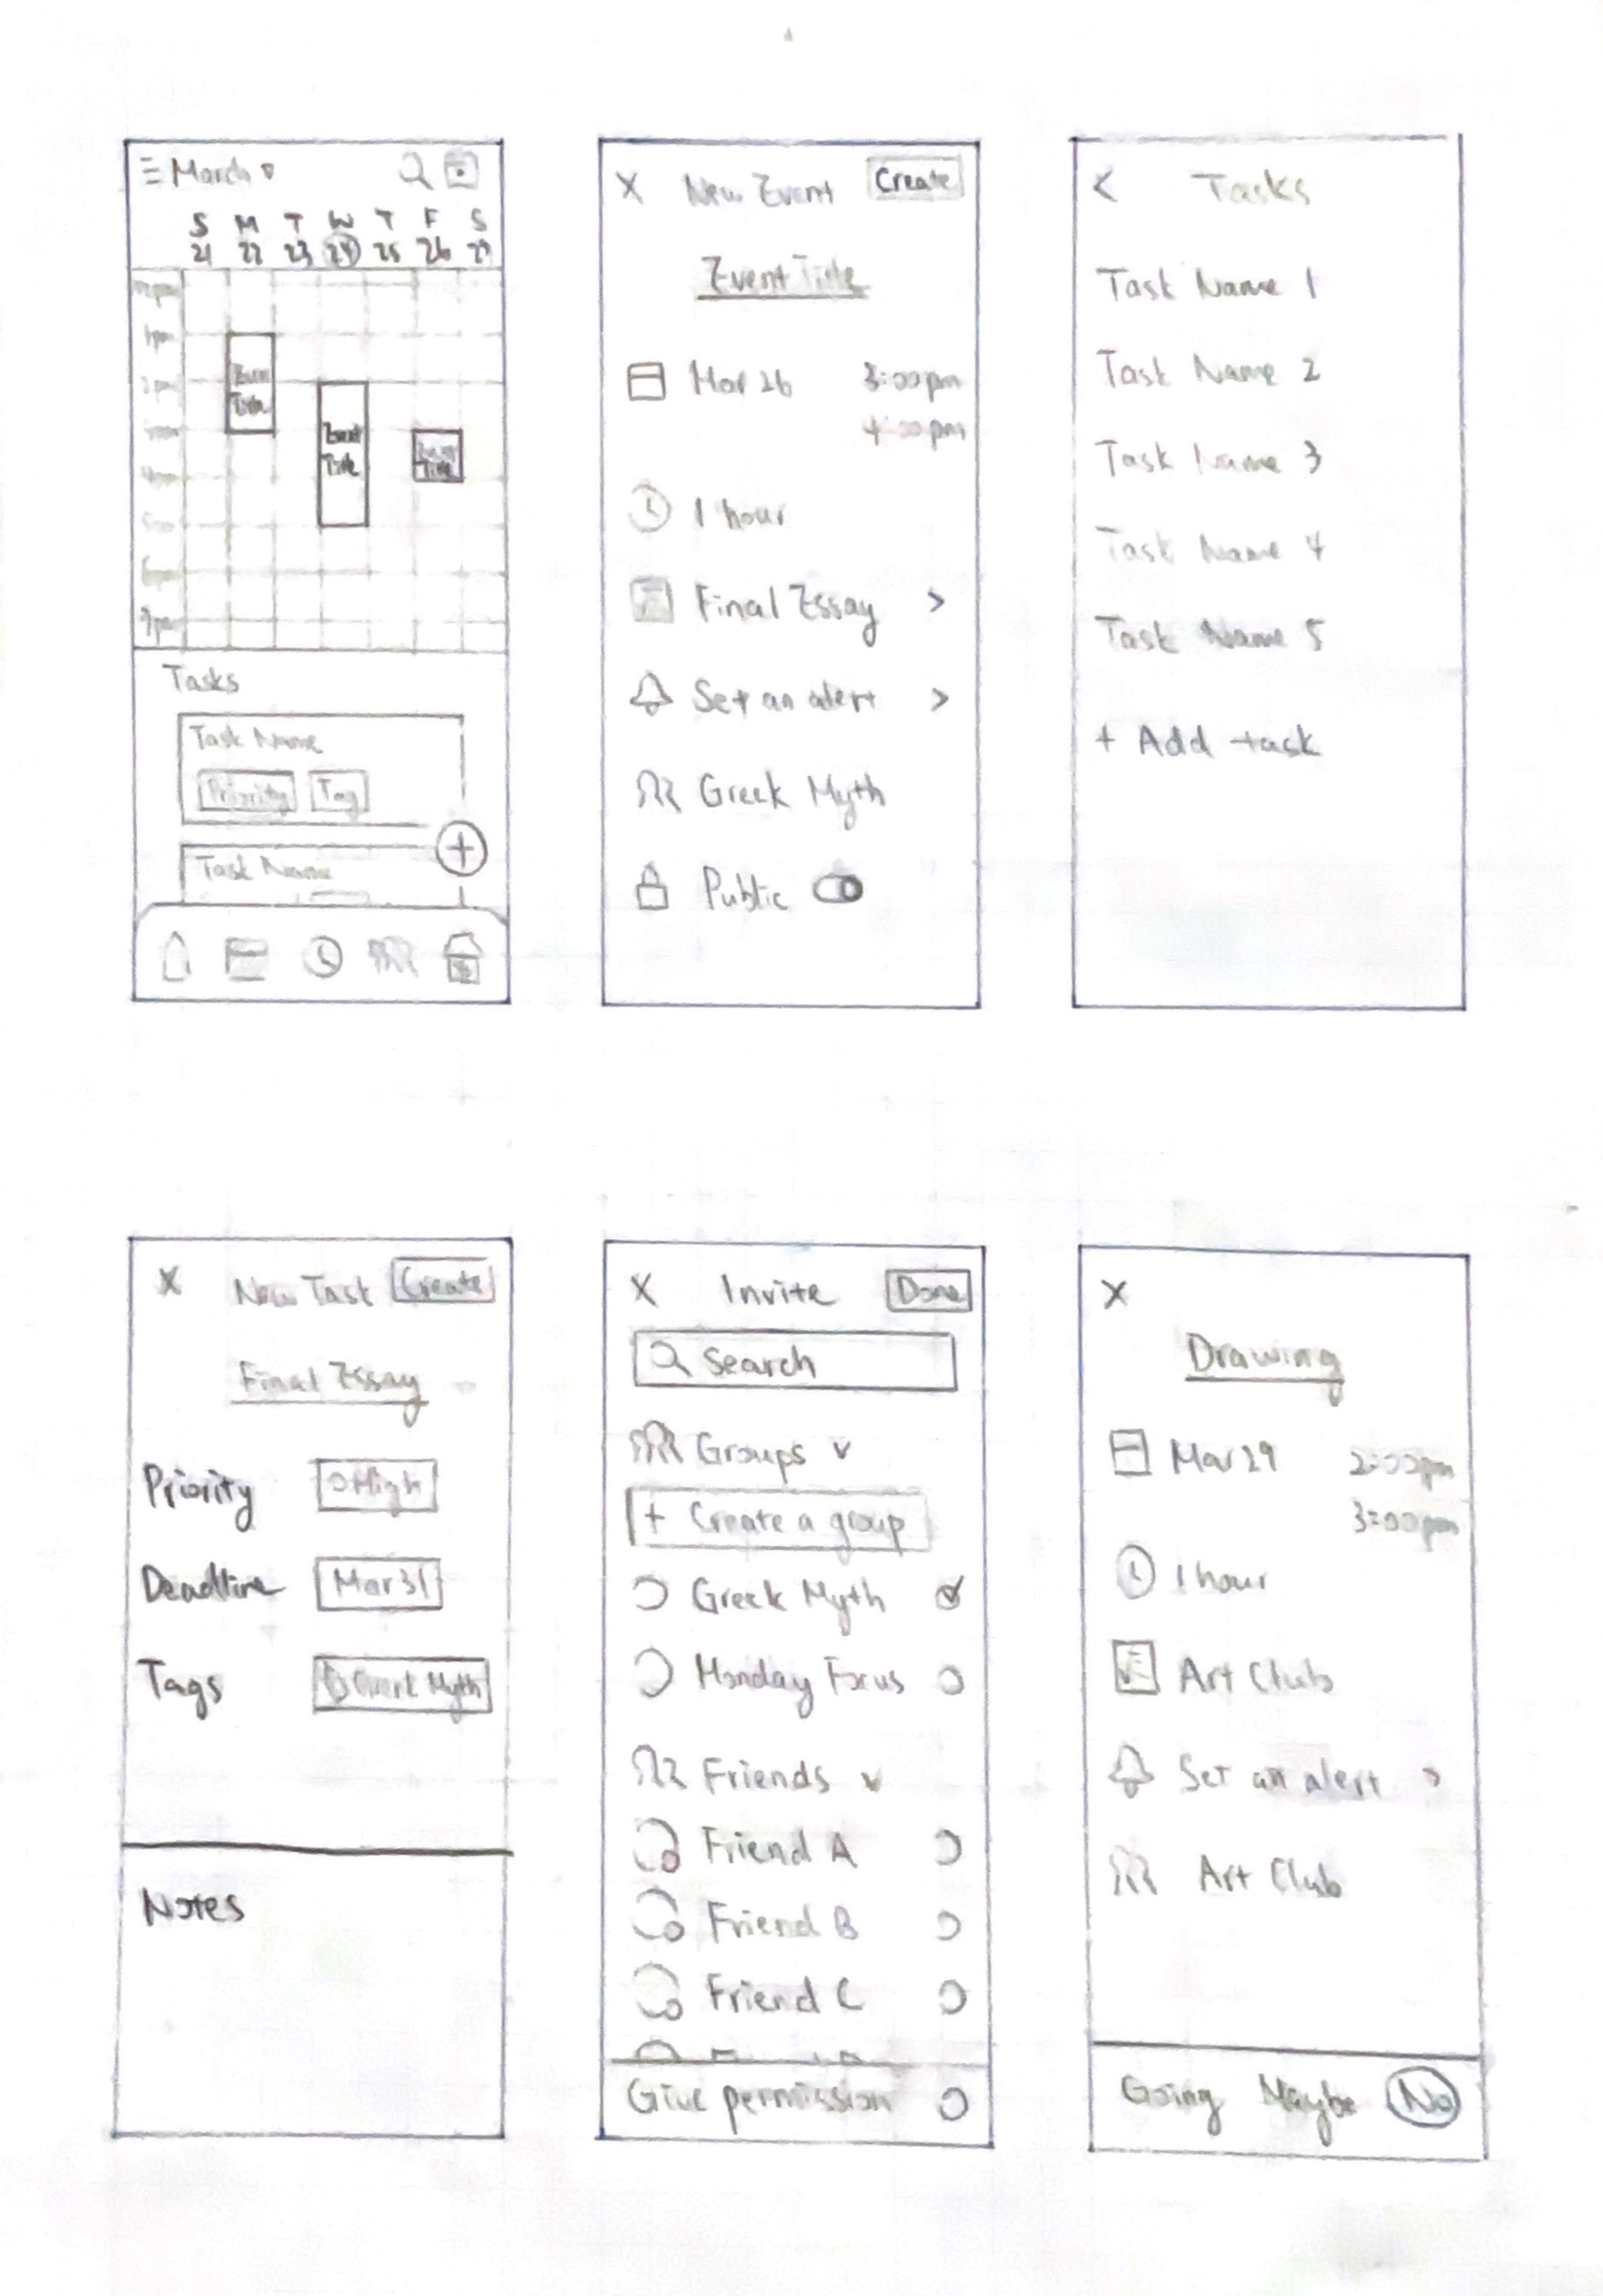 March
S M T W T F S
21 22 23 24 25 26 27
1pm
2pm
4pm
6pm
7pm
Event
Title
Event
Title
Event
Title
Tasks
Task Name
Priority Tag
Task Name
X New Event Create
Event Title
Mar 26 3:00pm
4:00pm
1 hour
Final Essay >
Set an alert >
Greek Myth
Public
< Tasks
Task Name 1
Task Name 2
Task Name 3
Task Name 4
Task Name 5
+ Add task
X New Task Create
Final Essay
Priority High
Deadline Mar 31
Tags Greek Myth
Notes
X Invite Done
Search
Groups
+ Create a group
Greek Myth
Monday Focus
Friends
Friend A
Friend B
Friend C
Give permission
X
Drawing
Mar 29 2:00pm
3:00pm
1 hour
Art Club
Set an alert >
Art Club
Going Maybe No